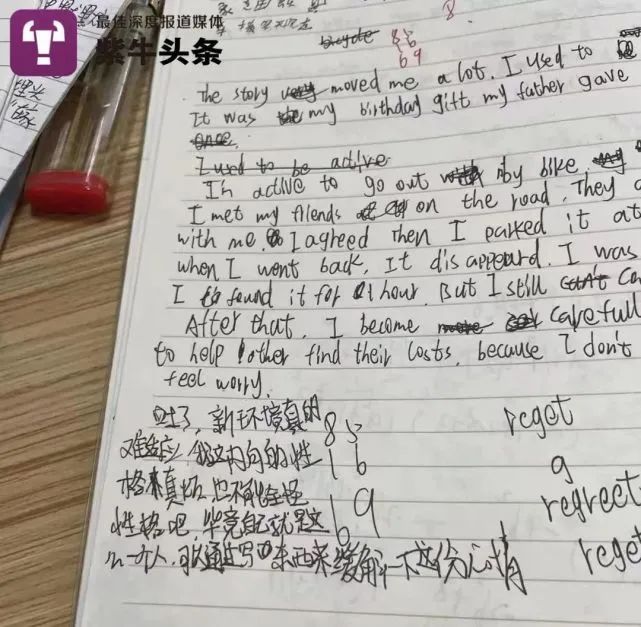 最佳深度报道媒体
紫牛头条
8
bicycle 86
69
The story moved me a lot. I used to
It was my birthday gift my father gave
I used to be active
In active to go out by bike.
I met my friends on the road. They
with me. I agreed then I parked it at
when I went back. It disappeard. I was
I found it for 1 hour. But I still can't
After that, I become carefull
to help other find their losts, because I don't
feel worry.
吐了，新环境真的 85 reget
难适应，我这内向的性 16 g
格真 也不能全怪 regreet
性格吧，毕竟自己就是这 69
么一个人，可以通过写 东西来缓解一下这份心情 reget